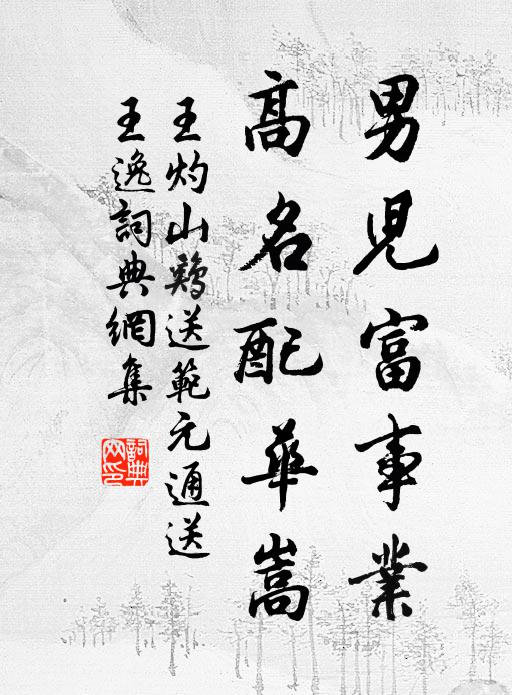 男児富事業
高名配華嵩
王灼山鷄送範元通送
王逸詞典網集
詞典网印